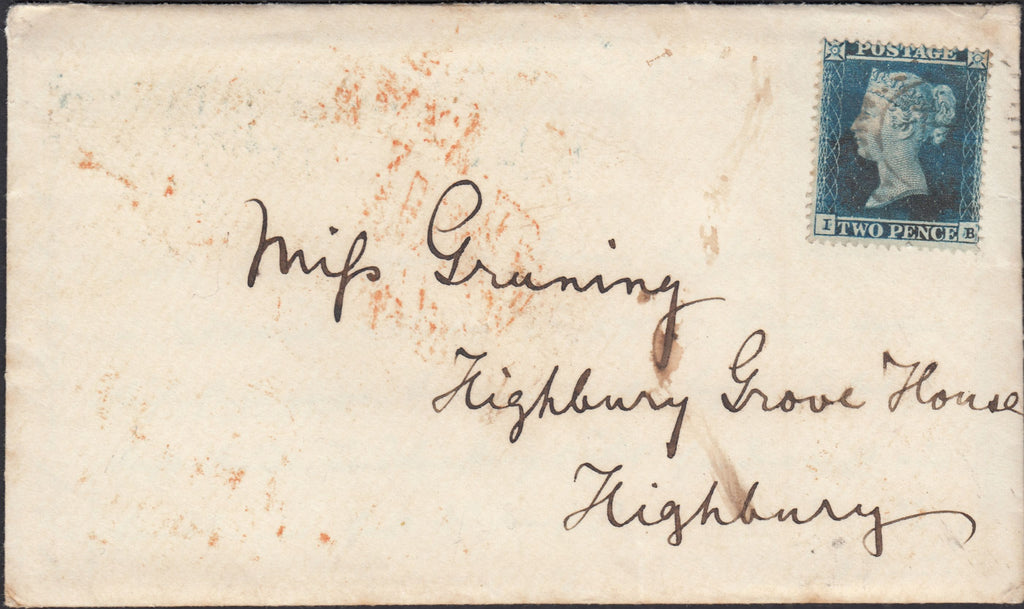 POSTAGE
I TWO PENCE B
Miſs Gruning
Highbury Grove House
Highbury